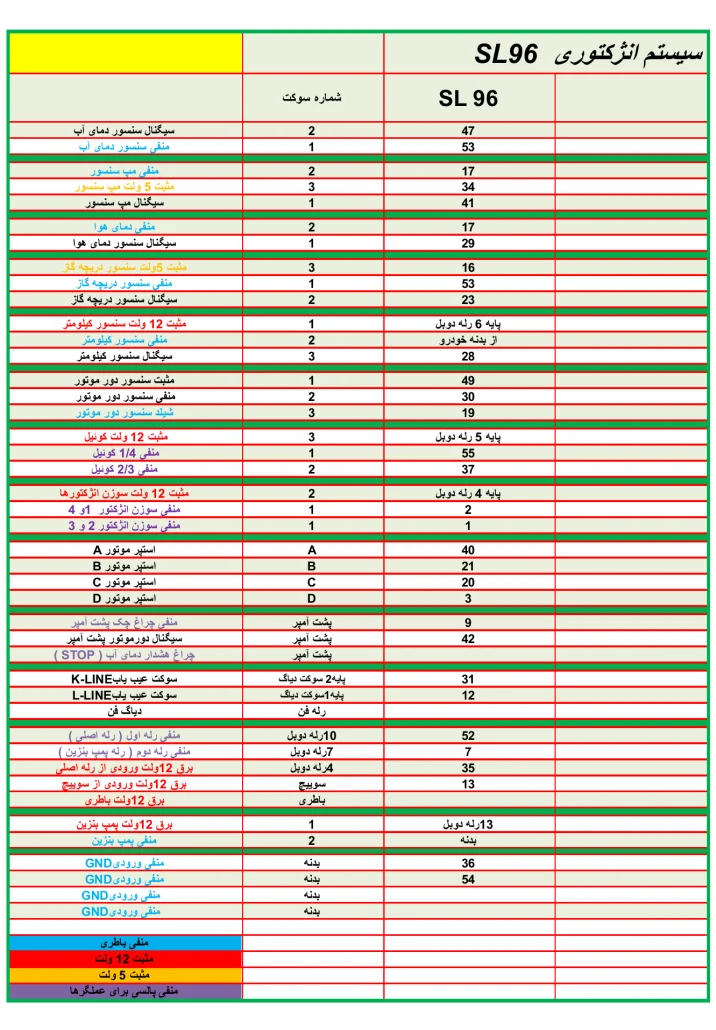 سیستم انژکتوری SL96
شماره سوکت SL 96
سیگنال سنسور دمای آب 2 47
منفی سنسور دمای آب 1 53
منفی مپ سنسور 2 17
مثبت 5 ولت مپ سنسور 3 34
سیگنال مپ سنسور 1 41
منفی دمای هوا 2 17
سیگنال سنسور دمای هوا 1 29
مثبت 5ولت سنسور دریچه گاز 3 16
منفی سنسور دریچه گاز 1 53
سیگنال سنسور دریچه گاز 2 23
مثبت 12 ولت سنسور کیلومتر 1 پایه 6 رله دوبل
منفی سنسور کیلومتر 2 از بدنه خودرو
سیگنال سنسور کیلومتر 3 28
مثبت سنسور دور موتور 1 49
منفی سنسور دور موتور 2 30
شیلد سنسور دور موتور 3 19
مثبت 12 ولت کوئیل 3 پایه 5 رله دوبل
منفی 1/4 کوئیل 1 55
منفی 2/3 کوئیل 2 37
مثبت 12 ولت سوزن انژکتورها 2 پایه 4 رله دوبل
منفی سوزن انژکتور 1و 4 1 2
منفی سوزن انژکتور 2 و 3 1 1
استپر موتور A A 40
استپر موتور B B 21
استپر موتور C C 20
استپر موتور D D 3
منفی چراغ چک پشت آمپر پشت آمپر 9
سیگنال دورموتور پشت آمپر پشت آمپر 42
چراغ هشدار دمای آب ( STOP ) پشت آمپر
سوکت عیب یابK-LINE پایه2 سوکت دیاگ 31
سوکت عیب یابL-LINE پایه1سوکت دیاگ 12
دیاگ فن رله فن
منفی رله اول ( رله اصلی ) 10رله دوبل 52
منفی رله دوم ( رله پمپ بنزین ) 7رله دوبل 7
برق 12ولت ورودی از رله اصلی 4رله دوبل 35
برق 12ولت ورودی از سوییچ سوییچ 13
برق 12ولت باطری باطری
برق 12ولت پمپ بنزین 1 13رله دوبل
منفی پمپ بنزین 2 بدنه
منفی ورودیGND بدنه 36
منفی ورودیGND بدنه 54
منفی ورودیGND بدنه
منفی ورودیGND بدنه
منفی باطری
مثبت 12 ولت
مثبت 5 ولت
منفی پالسی برای عملگرها